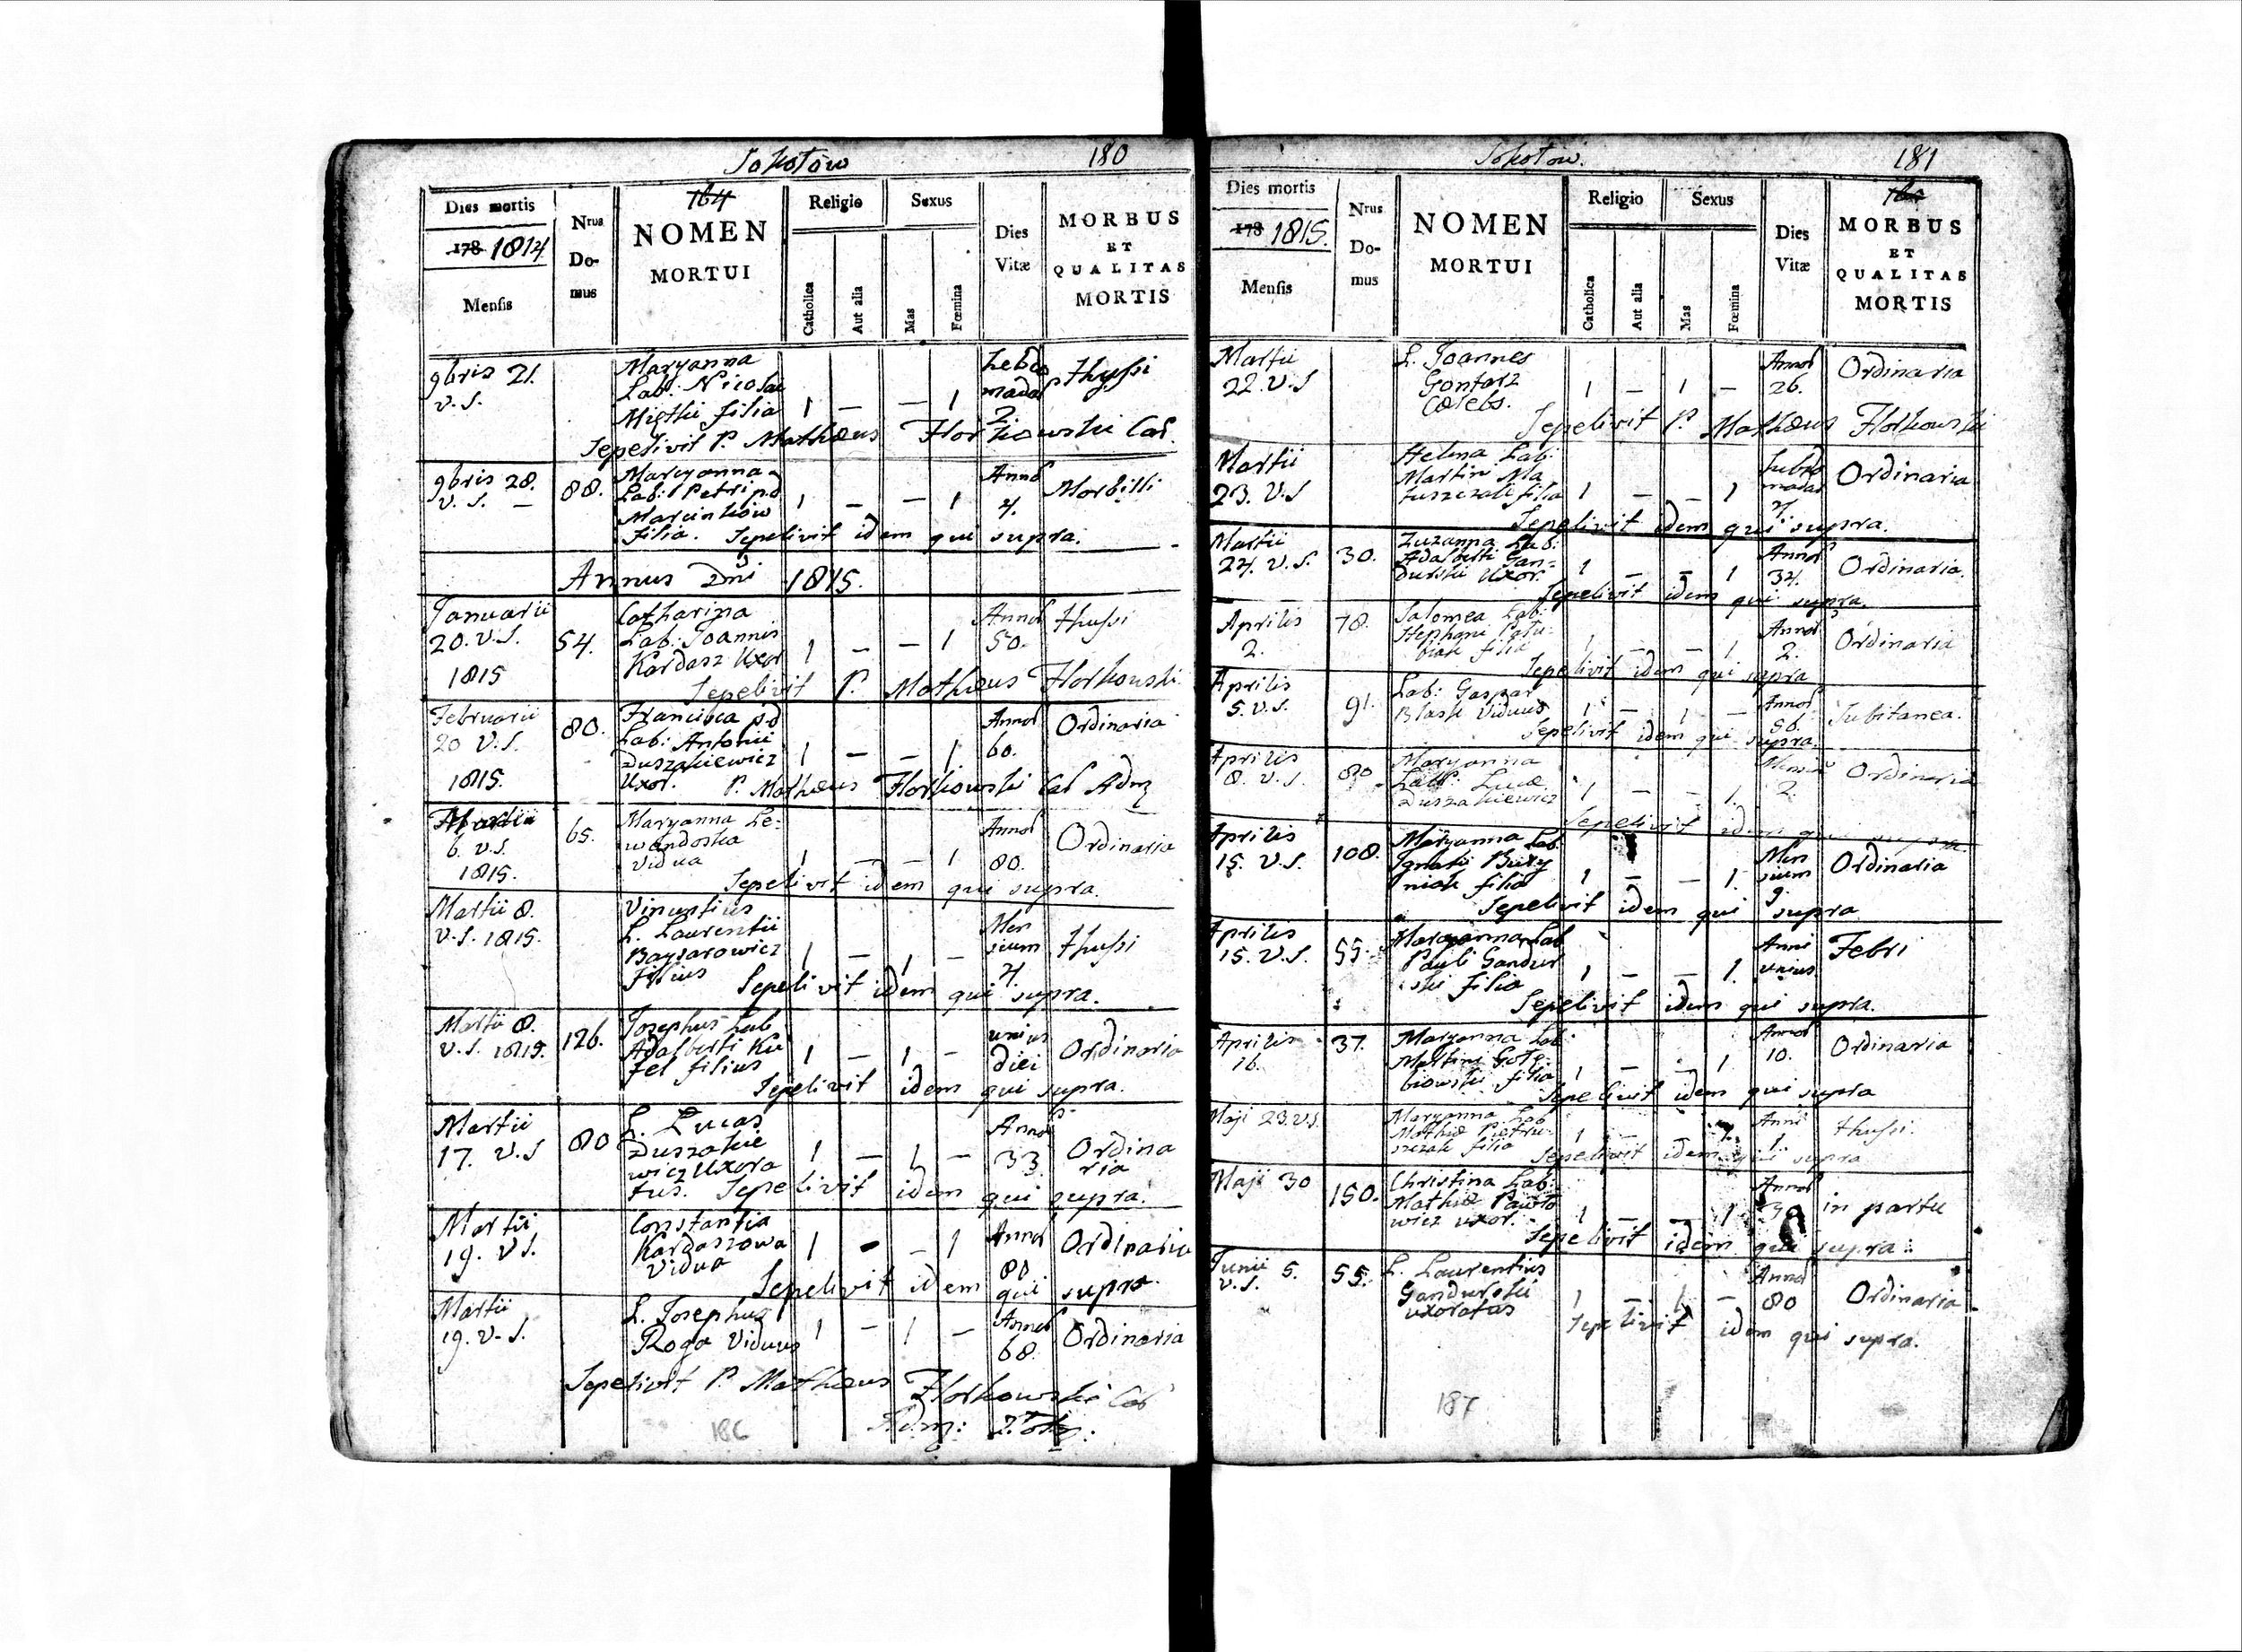 Sokołow 180
164
Dies mortis
178 1814
Mensis
Nrus
Do-
mus
NOMEN
MORTUI
Religio
Catholica
Aut alia
Sexus
Mas
Fœmina
Dies
Vitæ
MORBUS
ET
QUALITAS
MORTIS
9bris 21.
v.s.
Maryanna
Lab: Nicolai
filia 1 — — 1
Hebdo
madar
2.
thussi
Sepelivit P. Mathæus Florkowski Cap.
9bris 28.
v.s. —
88.
Maryanna
Lab: Petri pd
Marcinkow
filia. 1 — — 1
Annor
4.
Morbilli
Sepelivit idem qui supra.
Annus Dni 1815.
Januarii
20. v.s.
1815
54.
Catharina
Lab: Joannis
Kardasz Uxor 1 — — 1
Annor
50.
thussi
Sepelivit P. Mathæus Florkowski
Februarii
20 v.s.
1815.
80.
Francisca pd
Lab: Antonii
Duszakiewicz
Uxor. 1 — — 1
Annor
60.
Ordinaria
P. Mathæus Florkowski Adm
Martii
6. v.s.
1815.
65.
Maryanna Le-
wandoska
Vidua 1 — — 1
Annor
80.
Ordinaria
Sepelivit idem qui supra.
Martii 8.
v.s. 1815.
Vincentius
L. Laurentii
Baysarowicz
Filius 1 — 1 —
Men
sium
4.
thussi
Sepelivit idem qui supra.
Martii 8.
v.s. 1815.
126.
Josephus Lab
Adalberti Ku
fel filius 1 — 1 —
unius
diei
Ordinaria
Sepelivit idem qui supra.
Martii
17. v.s
80
L. Lucas
Duszakie
wicz Uxora
tus. 1 — 1 —
Annor
33.
Ordina
ria
Sepelivit idem qui supra.
Martii
19. v.s.
Constantia
Kardaszowa
Vidua 1 — — 1
Annor
80
Ordinaria
Sepelivit idem qui supra.
Martii
19. v.s.
L. Josephus
Roga Viduus 1 — 1 —
Annor
68.
Ordinaria
Sepelivit P. Mathæus Florkowski
Adm:
186
Sokołow. 181
Dies mortis
178 1815.
Mensis
Nrus
Do-
mus
NOMEN
MORTUI
Religio
Catholica
Aut alia
Sexus
Mas
Fœmina
Dies
Vitæ
MORBUS
ET
QUALITAS
MORTIS
Martii
22. v.s
L. Joannes
Gontarz
Cælebs. 1 — 1 —
Annor
26.
Ordinaria
Sepelivit P. Mathæus Florkowski
Martii
23. v.s
Helena Lab:
Martini Ma
tuszczak filia 1 — — 1
madar
Ordinaria
Sepelivit idem qui supra.
Martii
24. v.s.
30.
Zuzanna Lab:
Adalberti Gan-
durski Uxor. 1 — — 1
Annor
34.
Ordinaria.
Sepelivit idem qui supra.
Aprilis
2.
78.
Salomea Lab:
Stephani
filia 1 — — 1
Annor
2.
Ordinaria
Sepelivit idem qui supra
Aprilis
5. v.s.
91.
Lab: Gaspar
Blask Viduus 1 — 1 —
Annor
56.
Subitanea.
Sepelivit idem qui supra.
Aprilis
8. v.s.
80
Maryanna
Lab: Lucæ
Duszakiewicz 1 — — 1.
2.
Ordinaria
Sepelivit idem qui supra.
Aprilis
15. v.s.
108.
Maryanna Lab.
Ignatij Bury
niak filia 1 — — 1.
Men
sium
9.
Ordinaria
Sepelivit idem qui supra
Aprilis
15. v.s.
55.
Maryanna Lab
Pauli Gandur
ski filia 1 — — 1.
Anni
unius
Febri
Sepelivit idem qui supra.
Aprilis
16.
37.
Maryanna Lab:
Martini Golę-
biowski filia 1 — — 1
Annor
10.
Ordinaria
Sepelivit idem qui supra
Maji 23. v.s.
Maryanna Lab
Mathiæ Pietru-
szczak filia 1 — 1.
Anni
1.
thussi.
Sepelivit idem qui supra
Maji 30
150.
Christina Lab:
Mathiæ Pawło
wicz uxor. 1 — — 1
Annor
in partu
Sepelivit idem qui supra:
Junii 5.
v.s.
55.
L. Laurentius
Gandurski
uxoratus 1 — 1 —
Annor
80
Ordinaria
Sepelivit idem qui supra.
187